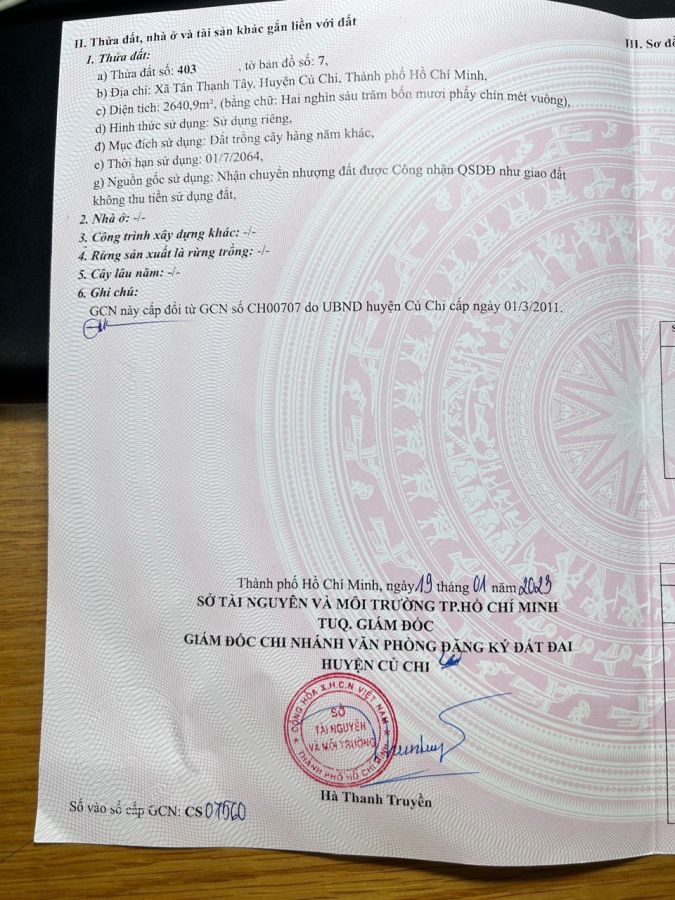 II. Thửa đất, nhà ở và tài sản khác gắn liền với đất
1. Thửa đất:
a) Thửa đất số: 403 , tờ bản đồ số: 7,
b) Địa chỉ: Xã Tân Thạnh Tây, Huyện Củ Chi, Thành phố Hồ Chí Minh,
c) Diện tích: 2640,9m², (bằng chữ: Hai nghìn sáu trăm bốn mươi phẩy chín mét vuông),
d) Hình thức sử dụng: Sử dụng riêng,
đ) Mục đích sử dụng: Đất trồng cây hàng năm khác,
e) Thời hạn sử dụng: 01/7/2064,
g) Nguồn gốc sử dụng: Nhận chuyển nhượng đất được Công nhận QSDĐ như giao đất
không thu tiền sử dụng đất,
2. Nhà ở: -/-
3. Công trình xây dựng khác: -/-
4. Rừng sản xuất là rừng trồng: -/-
5. Cây lâu năm: -/-
6. Ghi chú:
GCN này cấp đổi từ GCN số CH00707 do UBND huyện Củ Chi cấp ngày 01/3/2011.
III. Sơ đồ
Thành phố Hồ Chí Minh, ngày 19 tháng 01 năm 2023
SỞ TÀI NGUYÊN VÀ MÔI TRƯỜNG TP.HỒ CHÍ MINH
TUQ. GIÁM ĐỐC
GIÁM ĐỐC CHI NHÁNH VĂN PHÒNG ĐĂNG KÝ ĐẤT ĐAI
HUYỆN CỦ CHI
CỘNG HÒA X.H.C.N VIỆT NAM
SỞ
TÀI NGUYÊN
VÀ MÔI TRƯỜNG
THÀNH PHỐ HỒ CHÍ MINH
Hà Thanh Truyền
Số vào sổ cấp GCN: CS 07560